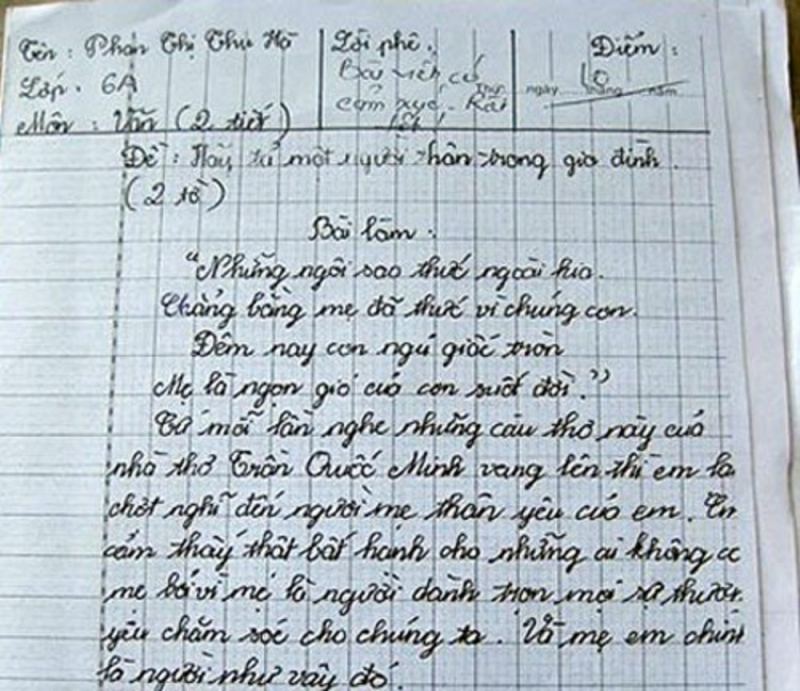 Tên : Phan Thị Thu Hà
Lớp . 6A
Môn : Văn (2 tiết)
Lời phê .
Bài viết có
cảm xúc. Rất
tốt!
Điểm :
10
ngày tháng năm
Đề : Hãy tả một người thân trong gia đình .
(2 tờ)
Bài làm :
"Những ngôi sao thức ngoài kia.
Chẳng bằng mẹ đã thức vì chúng con.
Đêm nay con ngủ giấc tròn
Mẹ là ngọn gió của con suốt đời."
Cứ mỗi lần nghe những câu thơ này của
nhà thơ Trần Quốc Minh vang lên thì em lạ
chợt nghĩ đến người mẹ thân yêu của em . Em
cảm thấy thật bất hạnh cho những ai không c
mẹ bởi vì mẹ là người dành trọn mọi sự thươn
yêu chăm sóc cho chúng ta . Và mẹ em chính
là người như vậy đó.